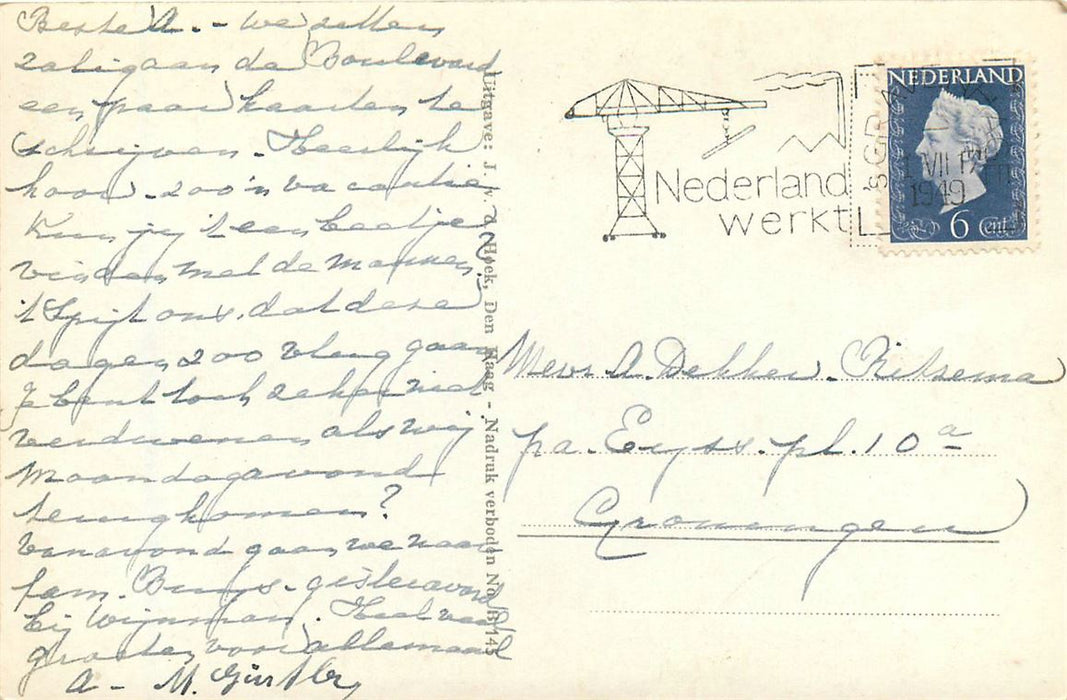 Beste A. - we zitten
zalig aan de Boulevard
een paar kaarten te
schrijven. Heerlijk
hoor. zoo'n vacantie
Kun jij 't een beetje
vinden met de mannen.
't Spijt ons. dat deze
dagen zoo vlug gaan
Je bent toch zeker niet
verdwenen als wij
Maandagavond
terugkomen?
Vanavond gaan we naar
fam. Buys - gisteravond
bij Wijnman. Heel veel
groeten voor allemaal
A - M.
Uitgave: J. v. d. Hoek, Den Haag - Nadruk verboden No.
Nederland
werkt
'SGRAV
VII
1949
NEDERLAND
6 cent
Mevr A. Dekker. Ritsema
pa. Eyss. pl. 10a
Groningen